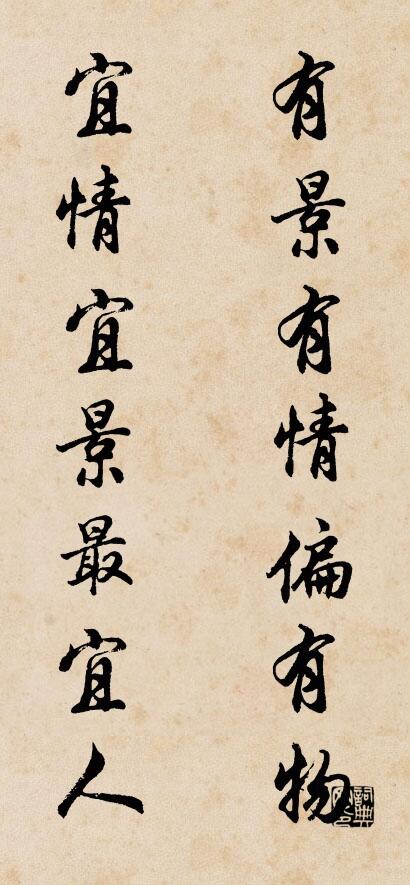 有景有情偏有物
宜情宜景最宜人